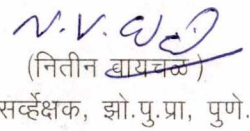 (नितीन बायचळ)
सर्व्हेक्षक, झो.पु.प्रा, पुणे